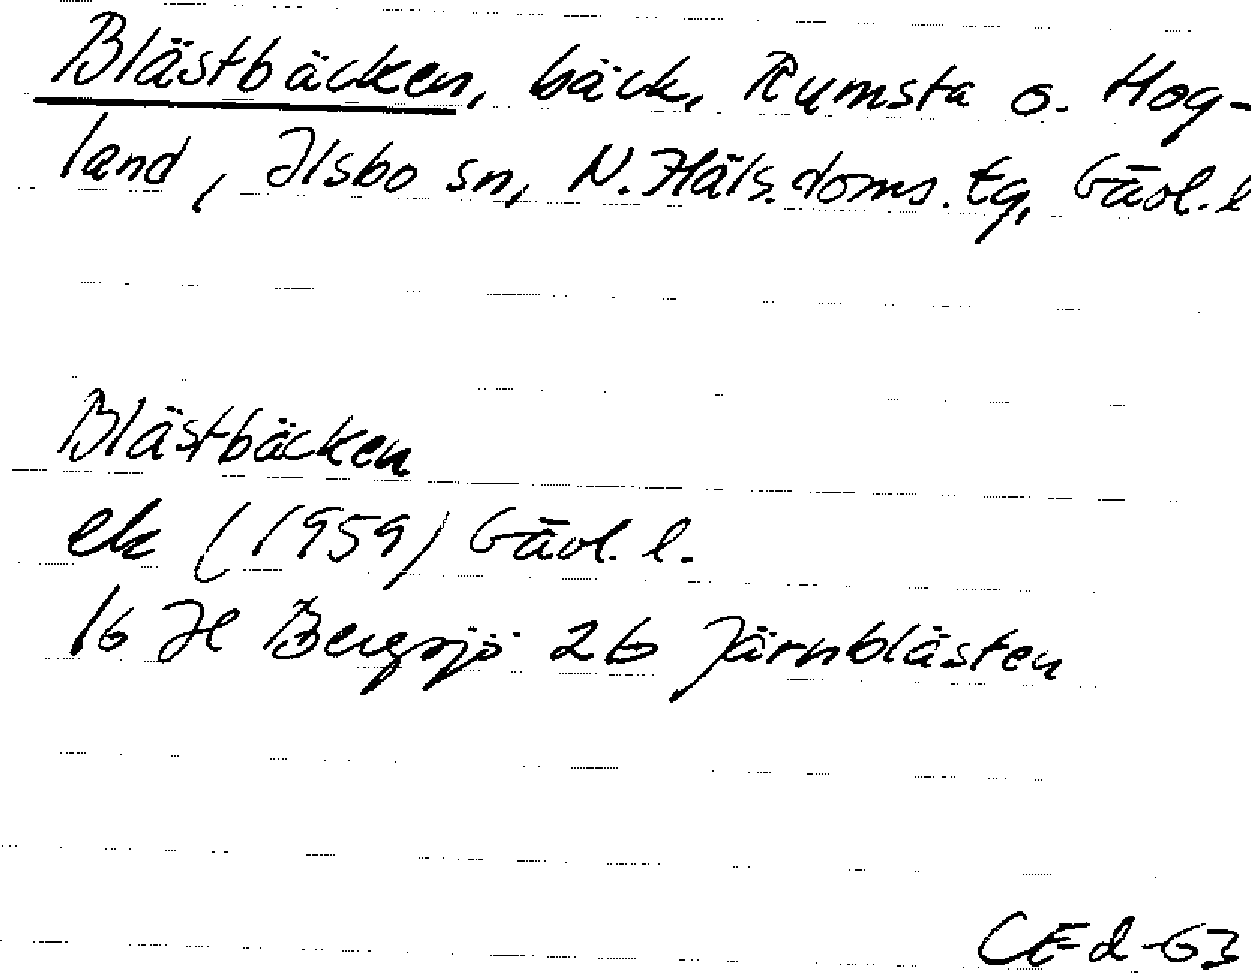 Blästbäcken, bäck, Rumsta o. Hog-
land, Ilsbo sn, N. Häls. doms. tg, Gävl. l
Blästbäcken
ek (1959) Gävl. l.
16 H Bergsjö 2b Järnblästen
CEd -63